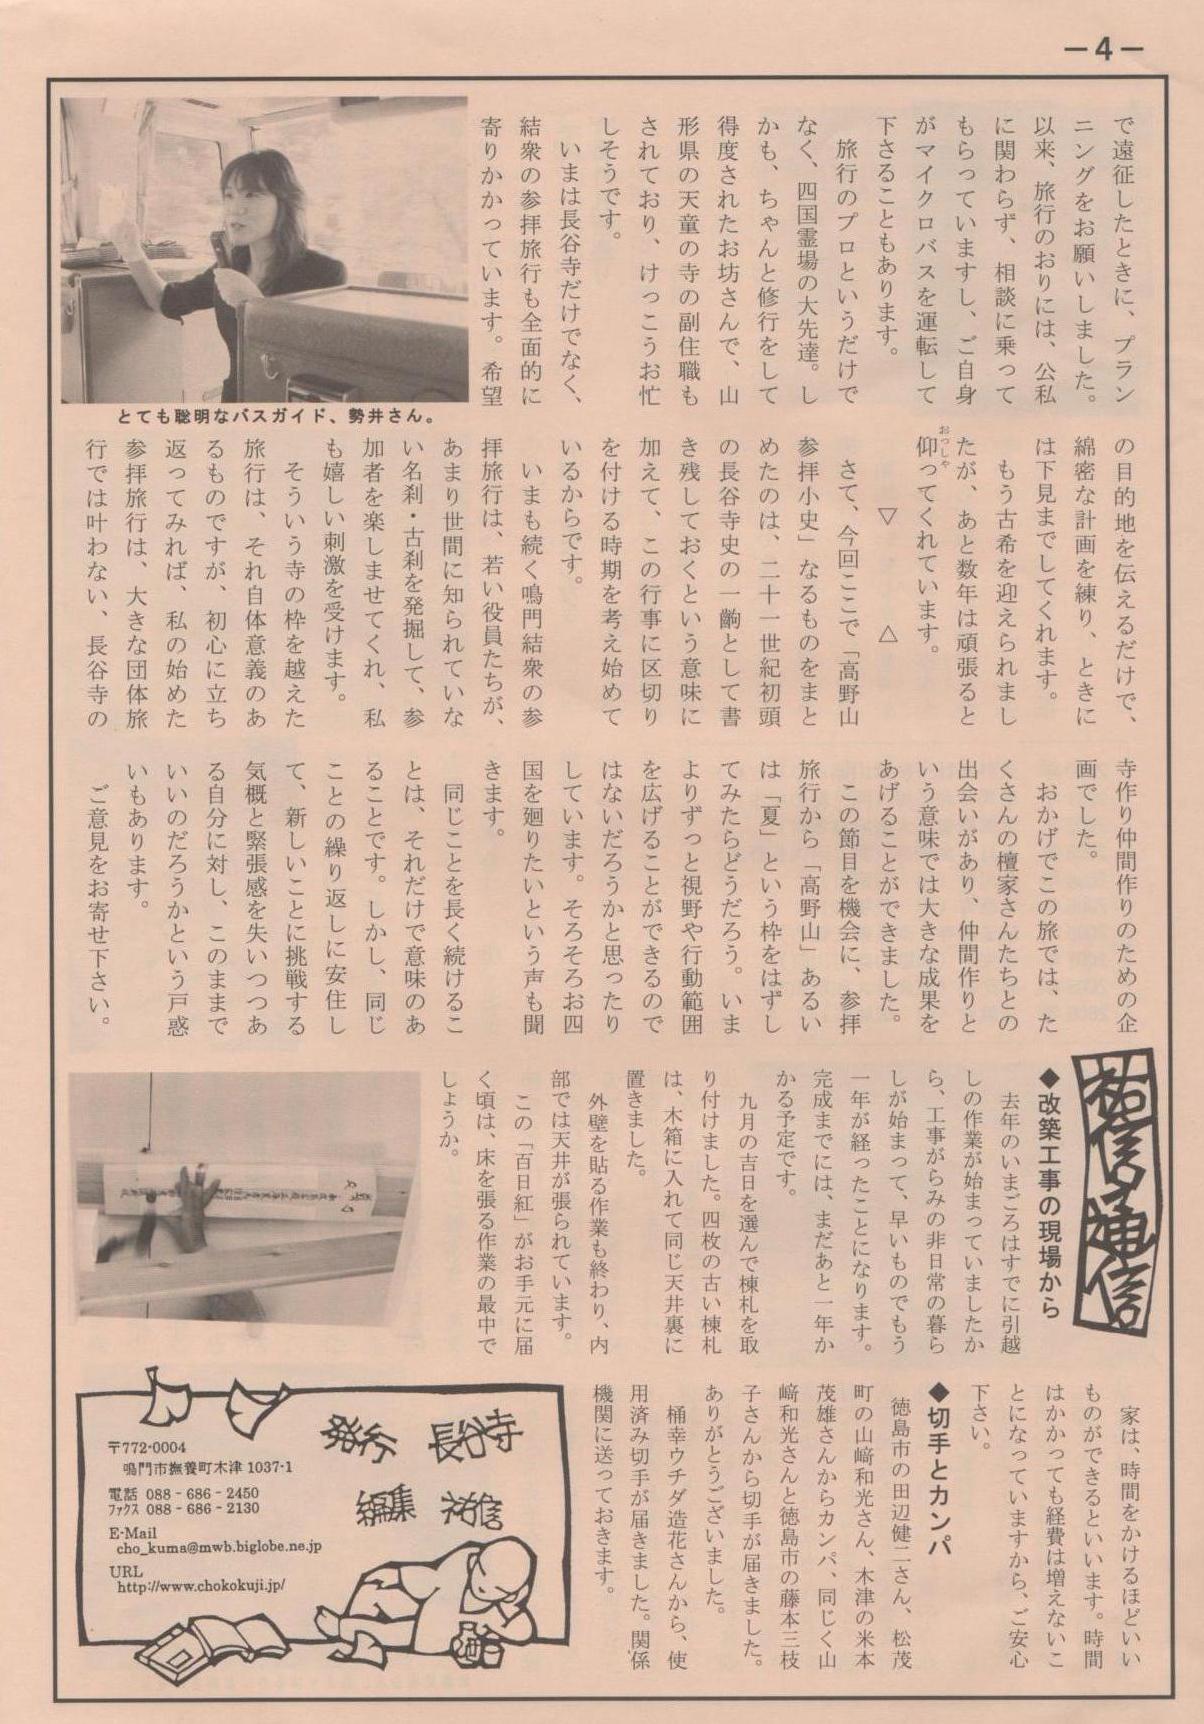 －4－
で遠征したときに、プラン
ニングをお願いしました。
以来、旅行のおりには、公私
に関わらず、相談に乗って
もらっていますし、ご自身
がマイクロバスを運転して
下さることもあります。
旅行のプロというだけで
なく、四国霊場の大先達。し
かも、ちゃんと修行をして
得度されたお坊さんで、山
形県の天童の寺の副住職も
されており、けっこうお忙
しそうです。
いまは長谷寺だけでなく、
結衆の参拝旅行も全面的に
寄りかかっています。希望
とても聡明なバスガイド、勢井さん。
の目的地を伝えるだけで、
綿密な計画を練り、ときに
は下見までしてくれます。
もう古希を迎えられまし
たが、あと数年は頑張ると
仰ってくれています。
おっしゃ
▽ △
さて、今回ここで「高野山
参拝小史」なるものをまと
めたのは、二十一世紀初頭
の長谷寺史の一齣として書
き残しておくという意味に
加えて、この行事に区切り
を付ける時期を考え始めて
いるからです。
いまも続く鳴門結衆の参
拝旅行は、若い役員たちが、
あまり世間に知られていな
い名刹・古刹を発掘して、参
加者を楽しませてくれ、私
も嬉しい刺激を受けます。
そういう寺の枠を越えた
旅行は、それ自体意義のあ
るものですが、初心に立ち
返ってみれば、私の始めた
参拝旅行は、大きな団体旅
行では叶わない、長谷寺の
寺作り仲間作りのための企
画でした。
おかげでこの旅では、た
くさんの檀家さんたちとの
出会いがあり、仲間作りと
いう意味では大きな成果を
あげることができました。
この節目を機会に、参拝
旅行から「高野山」あるい
は「夏」という枠をはずし
てみたらどうだろう。いま
よりずっと視野や行動範囲
を広げることができるので
はないだろうかと思ったり
しています。そろそろお四
国を廻りたいという声も聞
きます。
同じことを長く続けるこ
とは、それだけで意味のあ
ることです。しかし、同じ
ことの繰り返しに安住し
て、新しいことに挑戦する
気概と緊張感を失いつつあ
る自分に対し、このままで
いいのだろうかという戸惑
いもあります。
ご意見をお寄せ下さい。
祐信通信
◆改築工事の現場から
去年のいまごろはすでに引越
しの作業が始まっていましたか
ら、工事がらみの非日常の暮ら
しが始まって、早いものでもう
一年が経ったことになります。
完成までには、まだあと一年か
かる予定です。
九月の吉日を選んで棟札を取
り付けました。四枚の古い棟札
は、木箱に入れて同じ天井裏に
置きました。
外壁を貼る作業も終わり、内
部では天井が張られています。
この「百日紅」がお手元に届
く頃は、床を張る作業の最中で
しょうか。
家は、時間をかけるほどいい
ものができるといいます。時間
はかかっても経費は増えないこ
とになっていますから、ご安心
下さい。
◆切手とカンパ
徳島市の田辺健二さん、松茂
町の山﨑和光さん、木津の米本
茂雄さんからカンパ、同じく山
﨑和光さんと徳島市の藤本三枝
子さんから切手が届きました。
ありがとうございました。
桶幸ウチダ造花さんから、使
用済み切手が届きました。関係
機関に送っておきます。
発行 長谷寺
編集 祐信
〒772-0004
鳴門市撫養町木津 1037-1
電話 088－686－2450
ファクス 088－686－2130
E-Mail
cho_kuma@mwb.biglobe.ne.jp
URL
http://www.chokokuji.jp/
酒